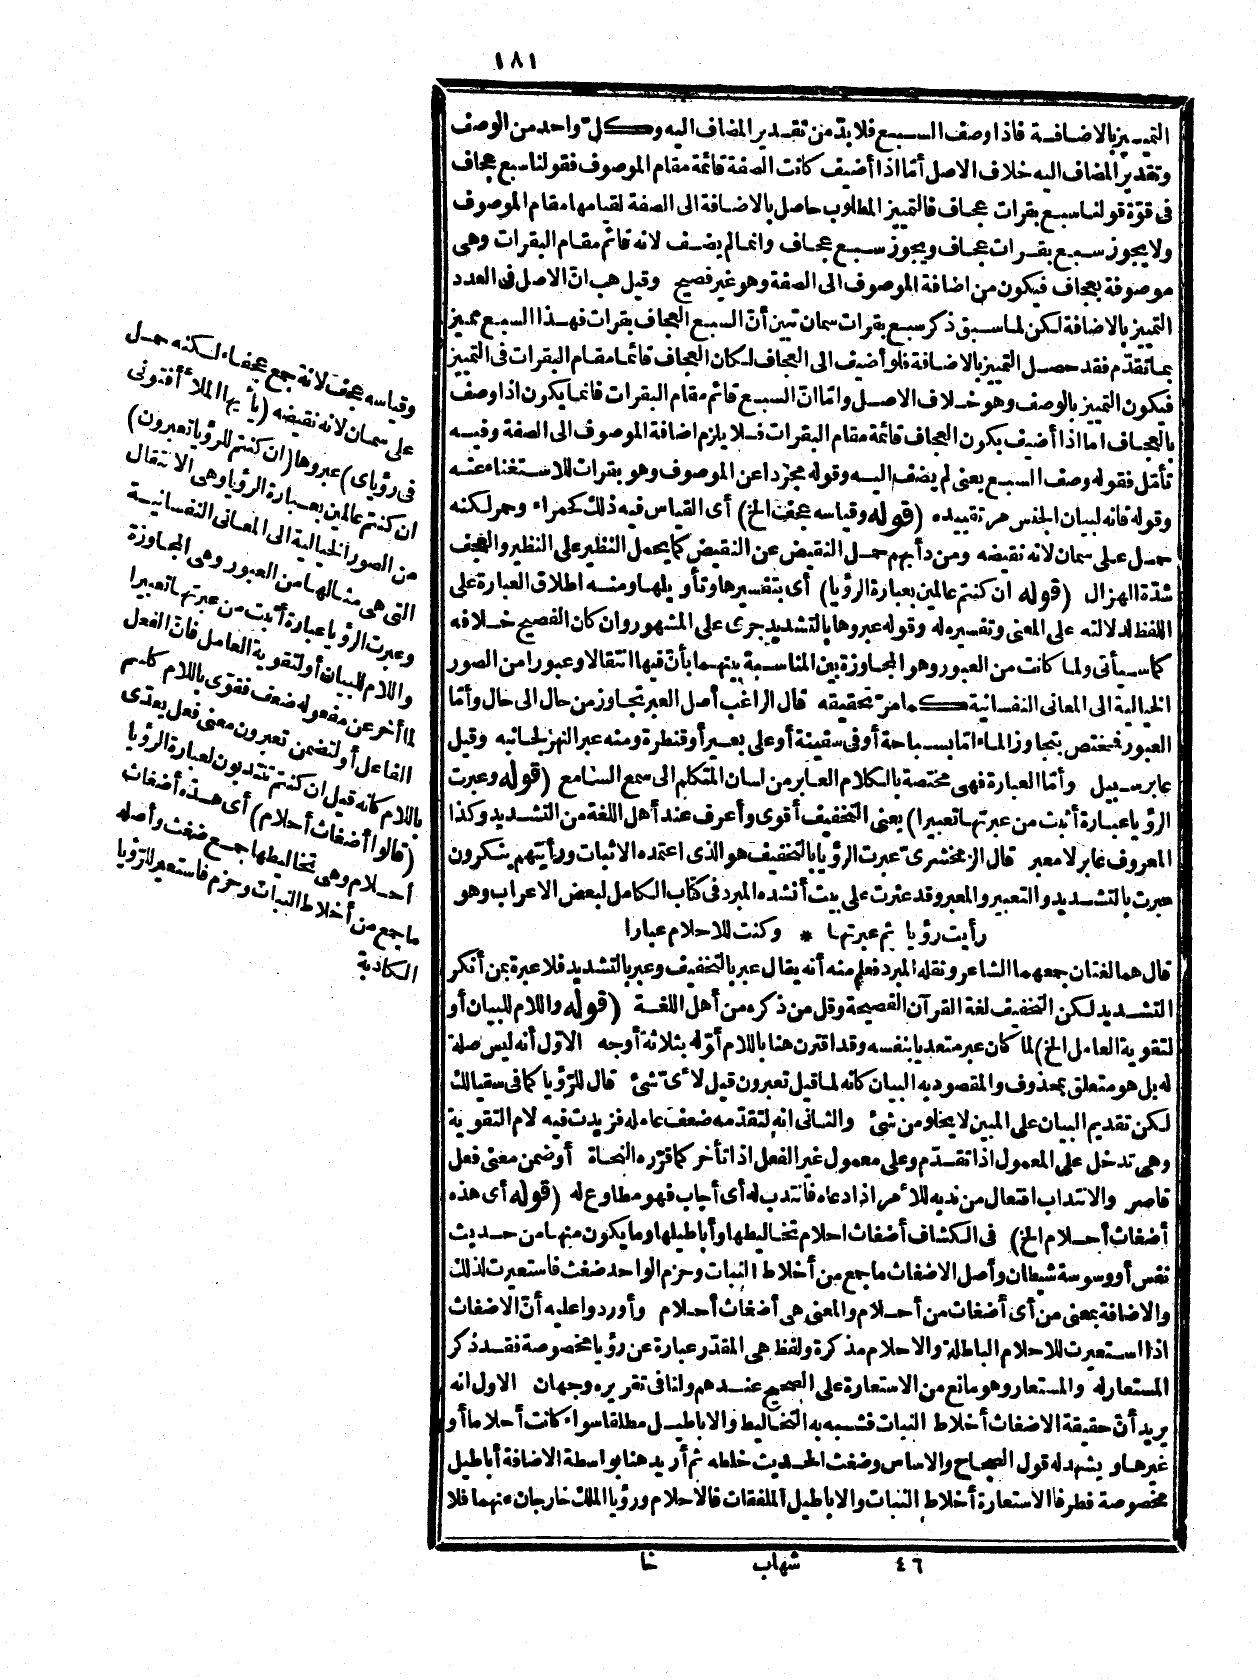 ١٨١
التمييز بالاضافة فاذا وصف السبع فلا بدّ من تقدير المضاف اليه وكلّ واحد من الوصف
وتقدير المضاف اليه خلاف الاصل أمّا اذا أضيف كانت الصفة قائمة مقام الموصوف فقولنا سبع عجاف
فى قوّة قولنا سبع بقرات عجاف فالتمييز المطلوب حاصل بالاضافة الى الصفة لقيامها مقام الموصوف
ولا يجوز سبع بقرات عجاف ويجوز سبع عجاف وانما لم يضف لانه قائم مقام البقرات وهى
موصوفة بعجاف فيكون من اضافة الموصوف الى الصفة وهو غير فصيح وقيل هب انّ الاصل فى العدد
التمييز بالاضافة لكن لما سبق ذكر سبع بقرات سمان تبين أنّ السبع العجاف بقرات فهذا السبع مميز
بما تقدّم فقد حصل التمييز بالاضافة فلو أضيف الى العجاف لكان العجاف قائما مقام البقرات فى التمييز
فيكون التمييز بالوصف وهو خلاف الاصل وامّا انّ السبع قائم مقام البقرات فانما يكون اذا وصف
بالعجاف اما اذا أضيف يكون العجاف قائمة مقام البقرات فلا يلزم اضافة الموصوف الى الصفة وفيه
تأمّل فقوله وصف السبع يعنى لم يضف اليه وقوله مجرّدا عن الموصوف وهو بقرات للاستغناء عنه
وقوله فانه لبيان الجنس مر تقييده (قوله وقياسه عجف الخ) أى القياس فيه ذلك كحمراء وحمر لكنه
حمل على سمان لانه نقيضه ومن دأبهم حمل النقيض عن النقيض كما يحمل النظير على النظير والعجف
شدّة الهزال (قوله ان كنتم عالمين بعبارة الرؤيا) أى بتفسيرها وتأويلها ومنه اطلاق العبارة على
اللفظ لدلالته على المعنى وتفسيره له وقوله عبروها بالتشديد جرى على المشهور وان كان الفصيح خلافه
كما سيأتى ولما كانت من العبور وهو المجاوزة بين المناسبة بينهما بأنّ فيها انتقالا وعبورا من الصور
الخيالية الى المعانى النفسانية كما مرّ تحقيقه قال الراغب أصل العبر تجاوز من حال الى حال وأمّا
العبور فيختص بتجاوز الماء امّا بسباحة أو فى سفينة أو على بعير أو قنطرة ومنه عبر النهر لجانبه وقيل
عابر سبيل وأمّا العبارة فهى مختصة بالكلام العابر من لسان المتكلم الى سمع السامع (قوله وعبرت
الرؤيا عبارة أثبت من عبرتها تعبيرا) يعنى التخفيف أقوى وأعرف عند أهل اللغة من التشديد وكذا
المعروف عابر لا معبر قال الزمخشرى عبرت الرؤيا بالتخفيف هو الذى اعتمده الاثبات ورأيتهم ينكرون
عبرت بالتشديد والتعبير والمعبر وقد عثرت على بيت أنشده المبرد فى كتاب الكامل لبعض الاعراب وهو
رأيت رؤيا ثم عبرتها * وكنت للاحلام عبارا
قال هما لغتان جمعهما الشاعر ونقله المبرد فعلم منه أنه يقال عبر بالتخفيف وعبر بالتشديد فلا عبرة بمن أنكر
التشديد لكن التخفيف لغة القرآن الفصيحة وقل من ذكره من أهل اللغة (قوله واللام للبيان أو
لتقوية العامل الخ) لما كان عبر متعديا بنفسه وقد اقترن هنا باللام أوّله بثلاثة أوجه الاوّل أنه ليس صلة
له بل هو متعلق بمحذوف والمقصود به البيان كانه لما قيل تعبرون قيل لأىّ شئ قال للرّؤيا كما فى سقيا لك
لكن تقديم البيان على المبين لا يخلو من شئ والثانى انه لتقدّمه ضعف عامله فزيدت فيه لام التقوية
وهى تدخل على المعمول اذا تقدّم وعلى معمول غير الفعل اذا تأخر كما قرّره النحاة أو ضمن معنى فعل
قاصر والانتداب افتعال من ندبه للأمر اذا دعاه فانتدب له أى أجاب فهو مطاوع له (قوله أى هذه
أضغاث أحلام الخ) فى الكشاف أضغاث احلام تخاليطها وأباطيلها وما يكون منها من حديث
نفس أو وسوسة شيطان وأصل الاضغاث ما جمع من أخلاط النبات وحزم الواحد ضغث فاستعيرت لذلك
والاضافة بمعنى من أى أضغاث من أحلام والمعنى هى أضغاث أحلام وأوردوا عليه أنّ الاضغاث
اذا استعيرت للاحلام الباطلة والاحلام مذكرة ولفظ هى المقدّر عبارة عن رؤيا مخصوصة فقد ذكر
المستعار له والمستعار وهو مانع من الاستعارة على الصحيح عندهم ولنا فى تقريره وجهان الاول انه
يريد أنّ حقيقة الاضغاث أخلاط النبات فشبه به التخاليط والاباطيل مطلقا سواء كانت أحلاما أو
غيرها ويشهد له قول الصحاح والاساس وضغث الحديث خلطه ثم أريد هنا بواسطة الاضافة أباطيل
مخصوصة فطرفا الاستعارة أخلاط النبات والاباطيل الملفقات فالاحلام ورؤيا الملك خارجان عنهما فلا
وقياسه عجف لانه جمع عجفاء لكنه حمل
على سمان لانه نقيضه (يا أيها الملأ أفتونى
فى رؤياى) عبروها (ان كنتم للرؤيا تعبرون)
ان كنتم عالمين بعبارة الرؤيا وهى الانتقال
من الصور الخيالية الى المعانى النفسانية
التى هى مثالها من العبور وهى المجاوزة
وعبرت الرؤيا عبارة أثبت من عبرتها تعبيرا
واللام للبيان أو لتقوية العامل فانّ الفعل
لما أخر عن مفعوله ضعف فقوى باللام كاسم
الفاعل أو لتضمن تعبرون معنى فعل يعدّى
باللام كانه قيل ان كنتم تنتدبون لعبارة الرؤيا
(قالوا أضغاث أحلام) أى هذه أضغاث
أحلام وهى تخاليطها جمع ضغث وأصله
ما جمع من أخلاط النبات وحزم فاستعير للرؤيا
الكاذبة
٤٦ شهاب خا